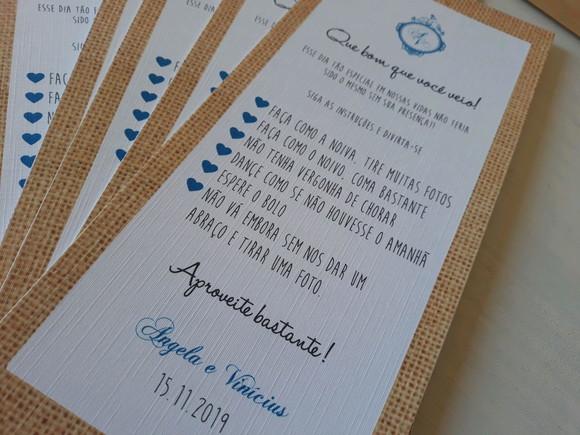 Que bom que você veio!
ESSE DIA TÃO ESPECIAL EM NOSSAS VIDAS NÃO TERIA
SIDO O MESMO SEM SUA PRESENÇA!!
SIGA AS INSTRUÇÕES E DIVIRTA-SE
FAÇA COMO A NOIVA. TIRE MUITAS FOTOS
FAÇA COMO O NOIVO. COMA BASTANTE
NÃO TENHA VERGONHA DE CHORAR
DANCE COMO SE NÃO HOUVESSE O AMANHÃ
ESPERE O BOLO
NÃO VÁ EMBORA SEM NOS DAR UM
ABRAÇO E TIRAR UMA FOTO.
Aproveite bastante!
Angela e Vinícius
15.11.2019
ESSE DIA TÃO E
SIDO
SI
FAÇA
FA
N